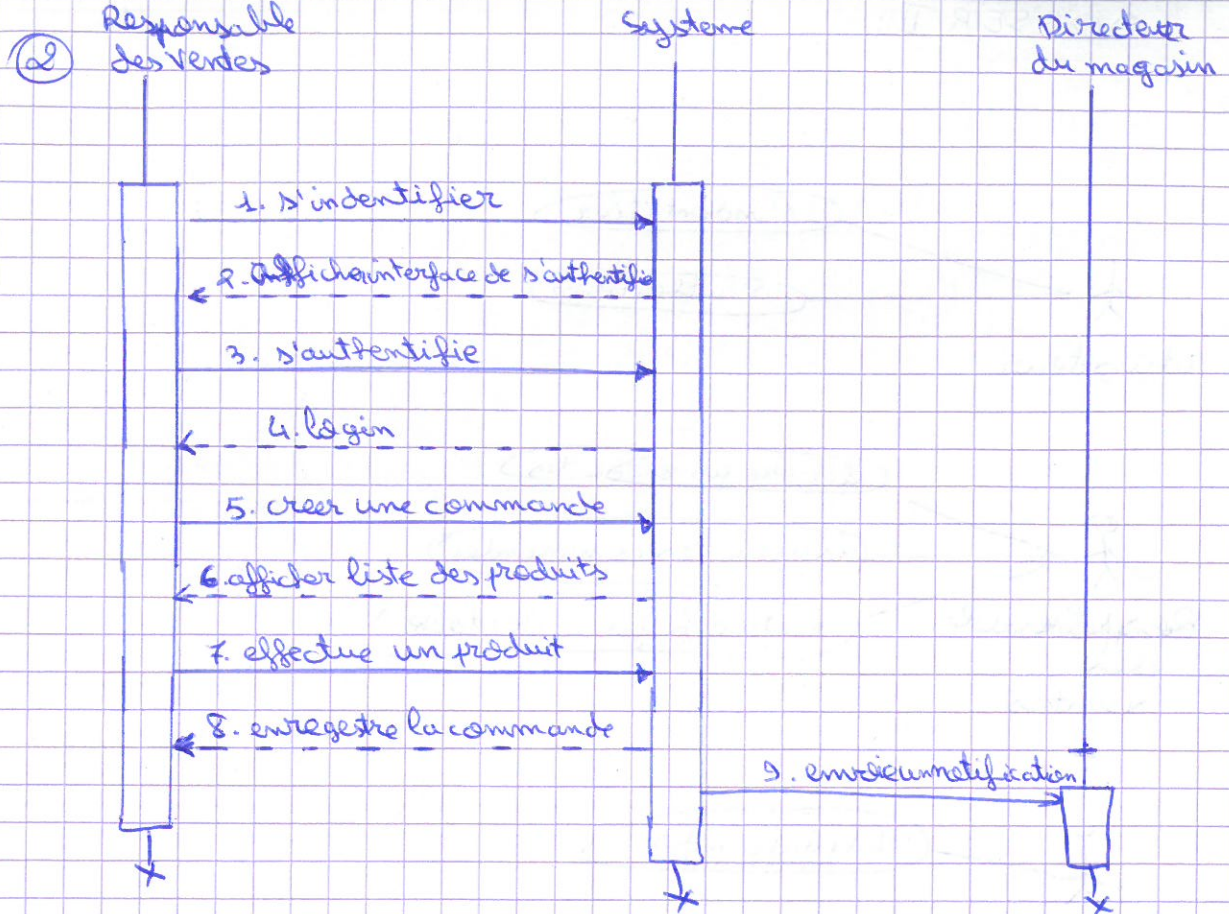 Responsable
des ventes
Systeme
Directeur
du magasin
2
1. s'indentifier
2. interface de s'authentifie
3. s'authentifie
4. login
5. creer une commande
6. afficher liste des produits
7. effectue un produit
8. enregestre la commande
9. envoie un notification